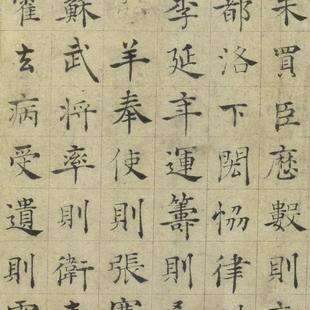 朱買臣歷數則
都洛下閎恊律
李延年運籌則
羊奉使則張
蘇武將率則衛
霍去病受遺則